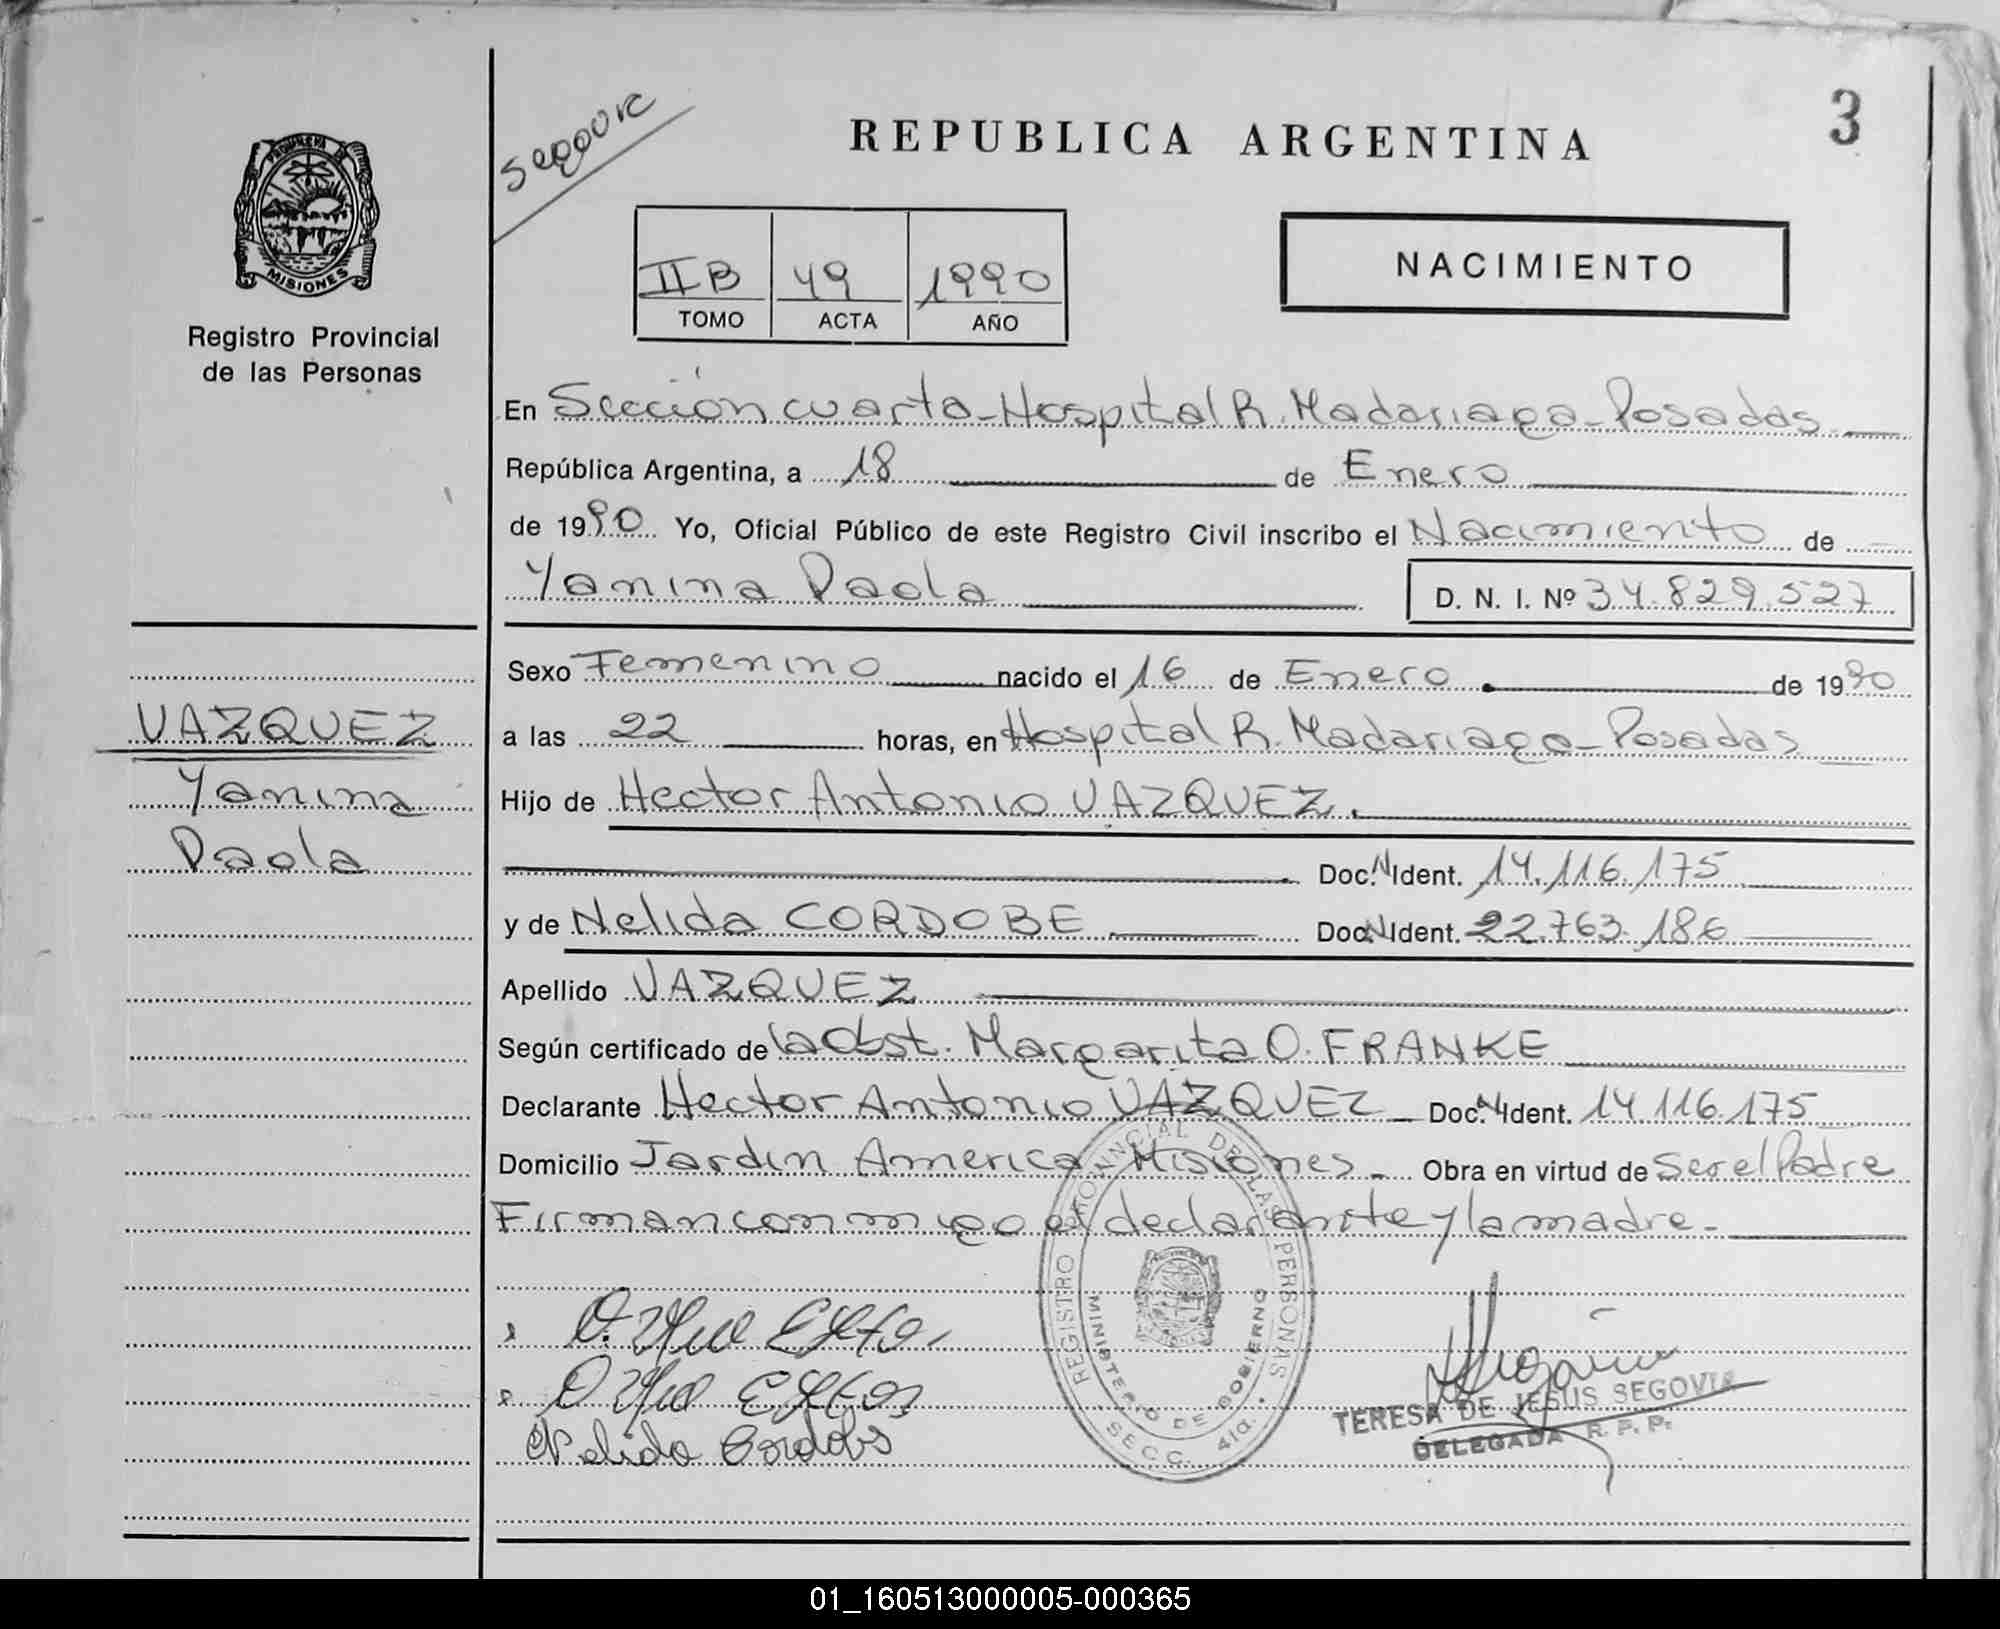 3
REPUBLICA ARGENTINA
PROVINCIA DE
MISIONES
Registro Provincial
de las Personas
II B 49 1990
TOMO ACTA AÑO
NACIMIENTO
En Sección cuarta - Hospital R. Madariaga - Posadas
República Argentina, a 18 de Enero
de 1990 Yo, Oficial Público de este Registro Civil inscribo el Nacimiento de
Yanina Paola D. N. I. Nº 34.829.527
Sexo Femenino nacido el 16 de Enero de 1990
VAZQUEZ
Yanina
Paola
a las 22 horas, en Hospital R. Madariaga - Posadas
Hijo de Hector Antonio VAZQUEZ.
Doc. N Ident. 14.116.175
y de Nelida CORDOBE Doc. N Ident. 22.763.186
Apellido VAZQUEZ
Según certificado de la Obst. Margarita O. FRANKE
Declarante Hector Antonio VAZQUEZ - Doc. N Ident. 14.116.175
Domicilio Jardin America Misiones - Obra en virtud de Ser el Padre
Firman conmigo el declarante y la madre -
REGISTRO PROVINCIAL DE LAS PERSONAS
MINISTERIO DE GOBIERNO
SECC. 4ta.
TERESA DE JESUS SEGOVIA
DELEGADA R. P. P.
01_160513000005-000365